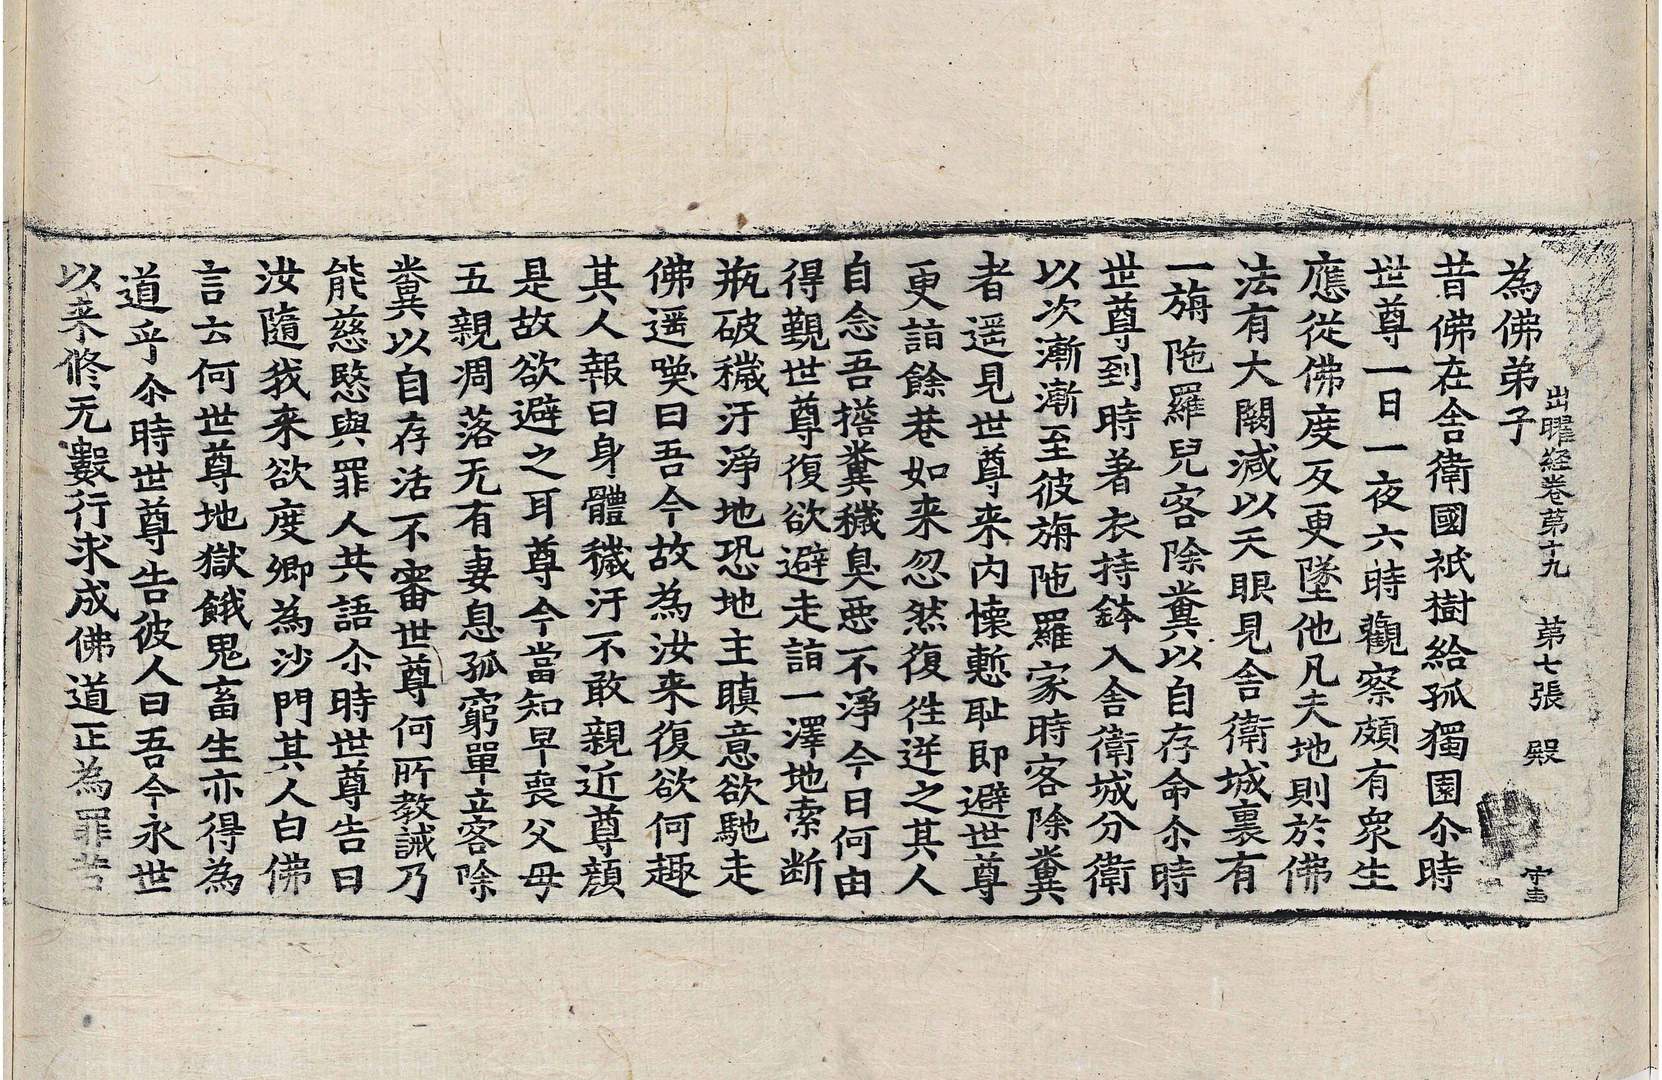 出曜経卷第十九　第七張　殿　守圭
為佛弟子
昔佛在舎衛國祇樹給孤獨園尒時
世尊一日一夜六時觀察頗有衆生
應從佛度反更墜他凡夫地則於佛
法有大闕減以天眼見舎衛城裏有
一旃陁羅兒客除糞以自存命尒時
世尊到時著衣持鉢入舎衛城分衛
以次漸漸至彼旃陁羅家時客除糞
者遥見世尊来内懐慙耻即避世尊
更詣餘巷如来忽然復徃逆之其人
自念吾擔糞穢臭惡不淨今日何由
得覲世尊復欲避走詣一澤地索断
瓶破穢汙淨地恐地主瞋意欲馳走
佛遥喚曰吾今故為汝来復欲何趣
其人報曰身體穢汙不敢親近尊顔
是故欲避之耳尊今當知早喪父母
五親凋落无有妻息孤窮單立客除
糞以自存活不審世尊何所教誡乃
能慈愍與罪人共語尒時世尊告曰
汝隨我来欲度卿為沙門其人白佛
言云何世尊地獄餓鬼畜生亦得為
道乎尒時世尊告彼人曰吾今永世
以来修无數行求成佛道正為罪苦